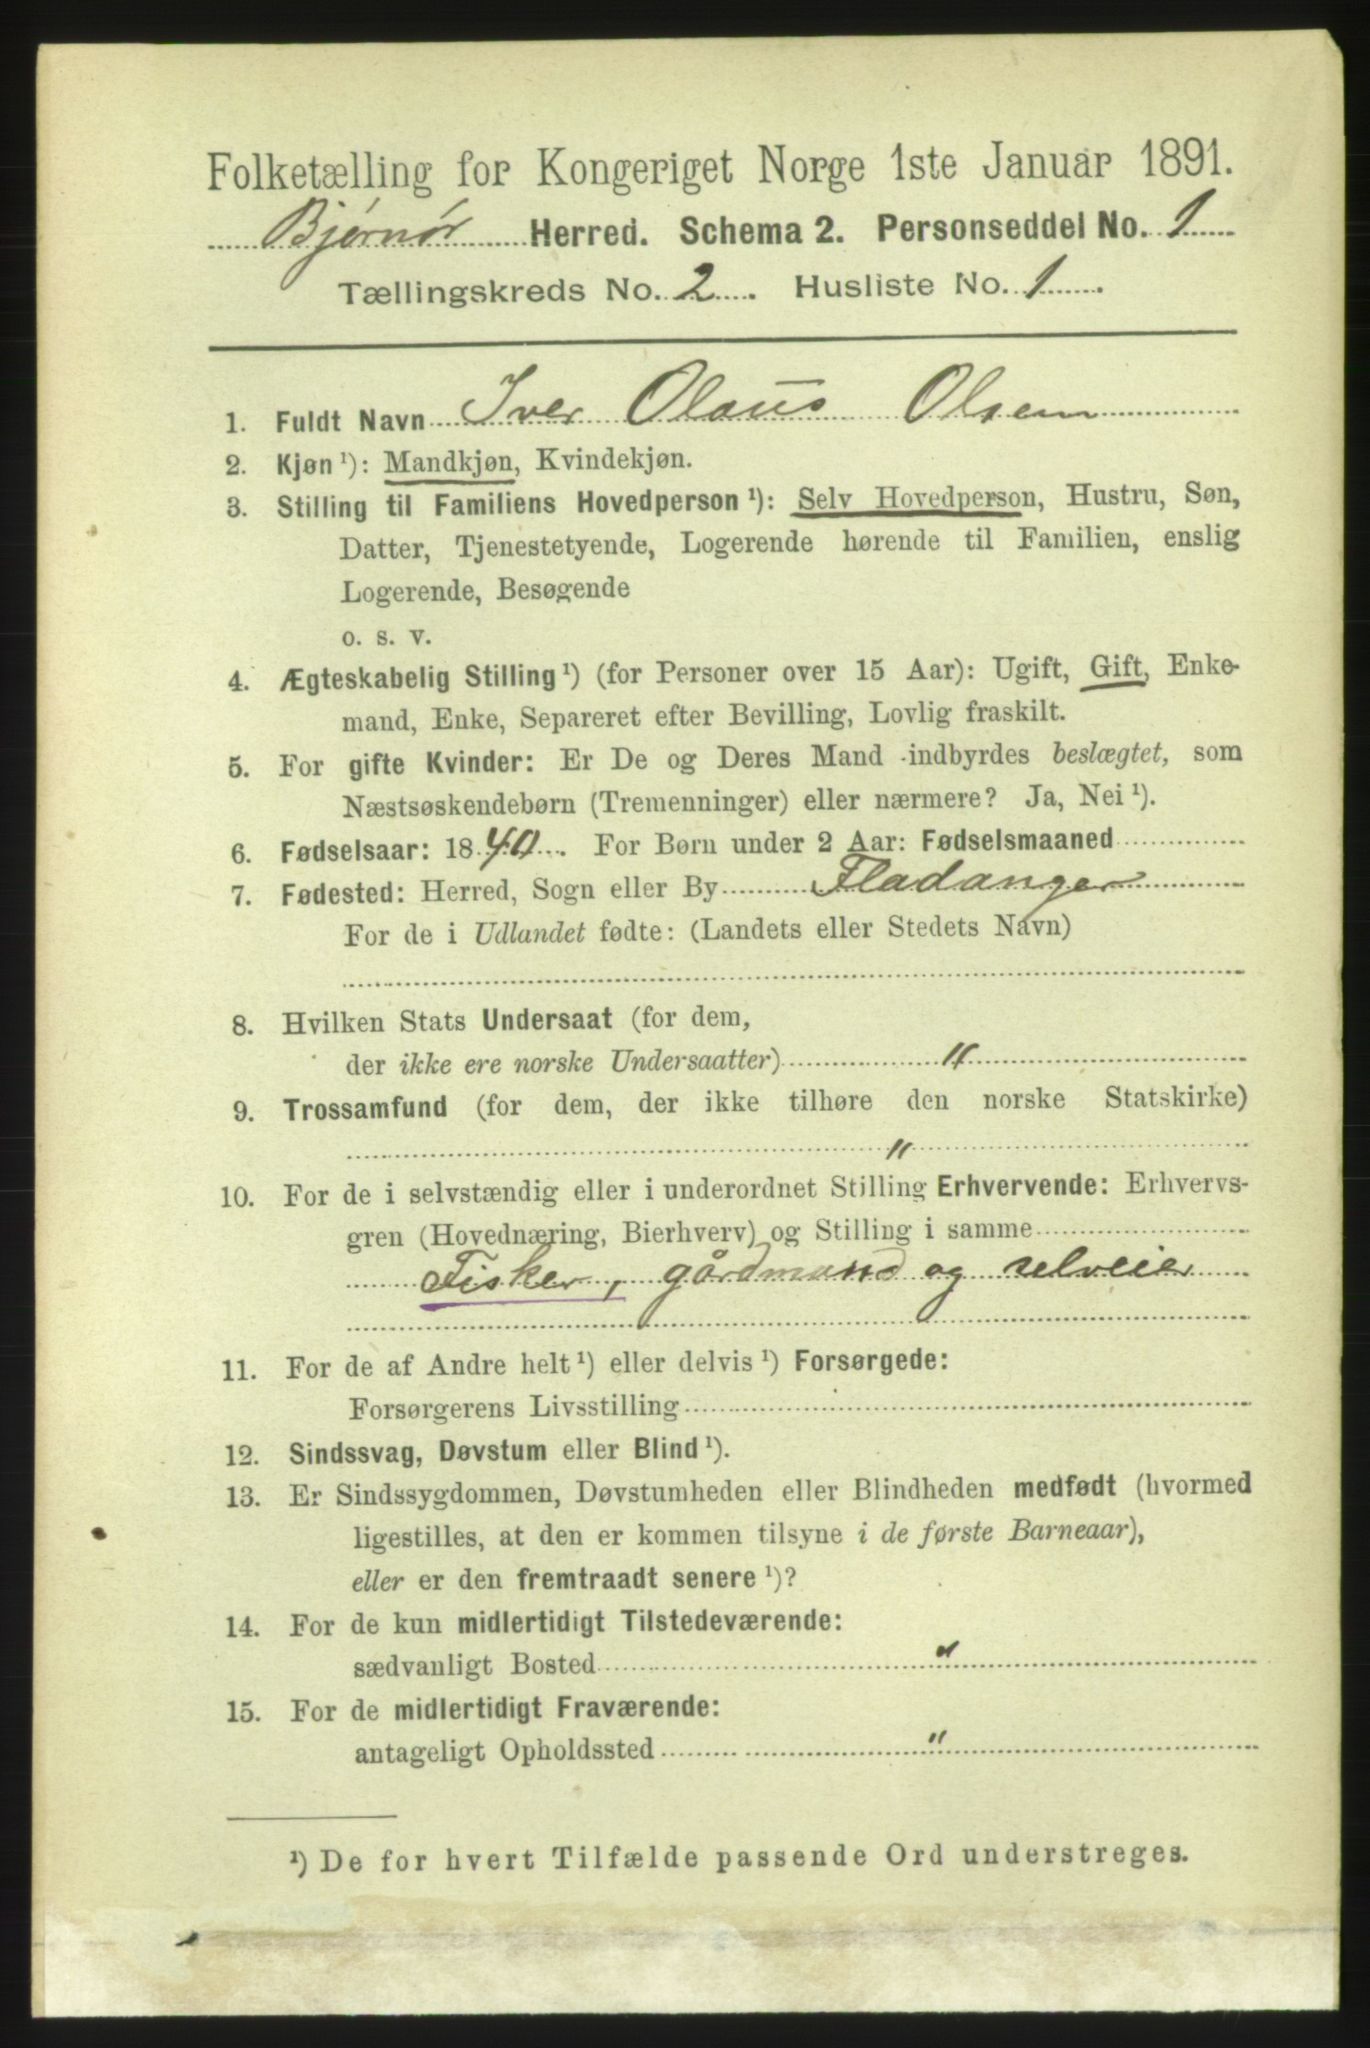 Folketælling for Kongeriget Norge 1ste Januar 1891.
Bjørnør Herred. Schema 2. Personseddel No. 1
Tællingskreds No. 2. Husliste No. 1.
1. Fuldt Navn Iver Olaus Olsen
2. Kjøn ¹): Mandkjøn, Kvindekjøn.
3. Stilling til Familiens Hovedperson ¹): Selv Hovedperson, Hustru, Søn,
Datter, Tjenestetyende, Logerende hørende til Familien, enslig
Logerende, Besøgende
o. s. v.
4. Ægteskabelig Stilling ¹) (for Personer over 15 Aar): Ugift, Gift, Enke-
mand, Enke, Separeret efter Bevilling, Lovlig fraskilt.
5. For gifte Kvinder: Er De og Deres Mand indbyrdes beslægtet, som
Næstsøskendebørn (Tremenninger) eller nærmere? Ja, Nei ¹).
6. Fødselsaar: 1840. For Børn under 2 Aar: Fødselsmaaned
7. Fødested: Herred, Sogn eller By Fladanger
For de i Udlandet fødte: (Landets eller Stedets Navn)
8. Hvilken Stats Undersaat (for dem,
der ikke ere norske Undersaatter) "
9. Trossamfund (for dem, der ikke tilhøre den norske Statskirke)
"
10. For de i selvstændig eller i underordnet Stilling Erhvervende: Erhvervs-
gren (Hovednæring, Bierhverv) og Stilling i samme
Fisker, gårdmand og selveier
11. For de af Andre helt ¹) eller delvis ¹) Forsørgede:
Forsørgerens Livsstilling
12. Sindssvag, Døvstum eller Blind ¹).
13. Er Sindssygdommen, Døvstumheden eller Blindheden medfødt (hvormed
ligestilles, at den er kommen tilsyne i de første Barneaar),
eller er den fremtraadt senere ¹)?
14. For de kun midlertidigt Tilstedeværende:
sædvanligt Bosted "
15. For de midlertidigt Fraværende:
antageligt Opholdssted "
¹) De for hvert Tilfælde passende Ord understreges.